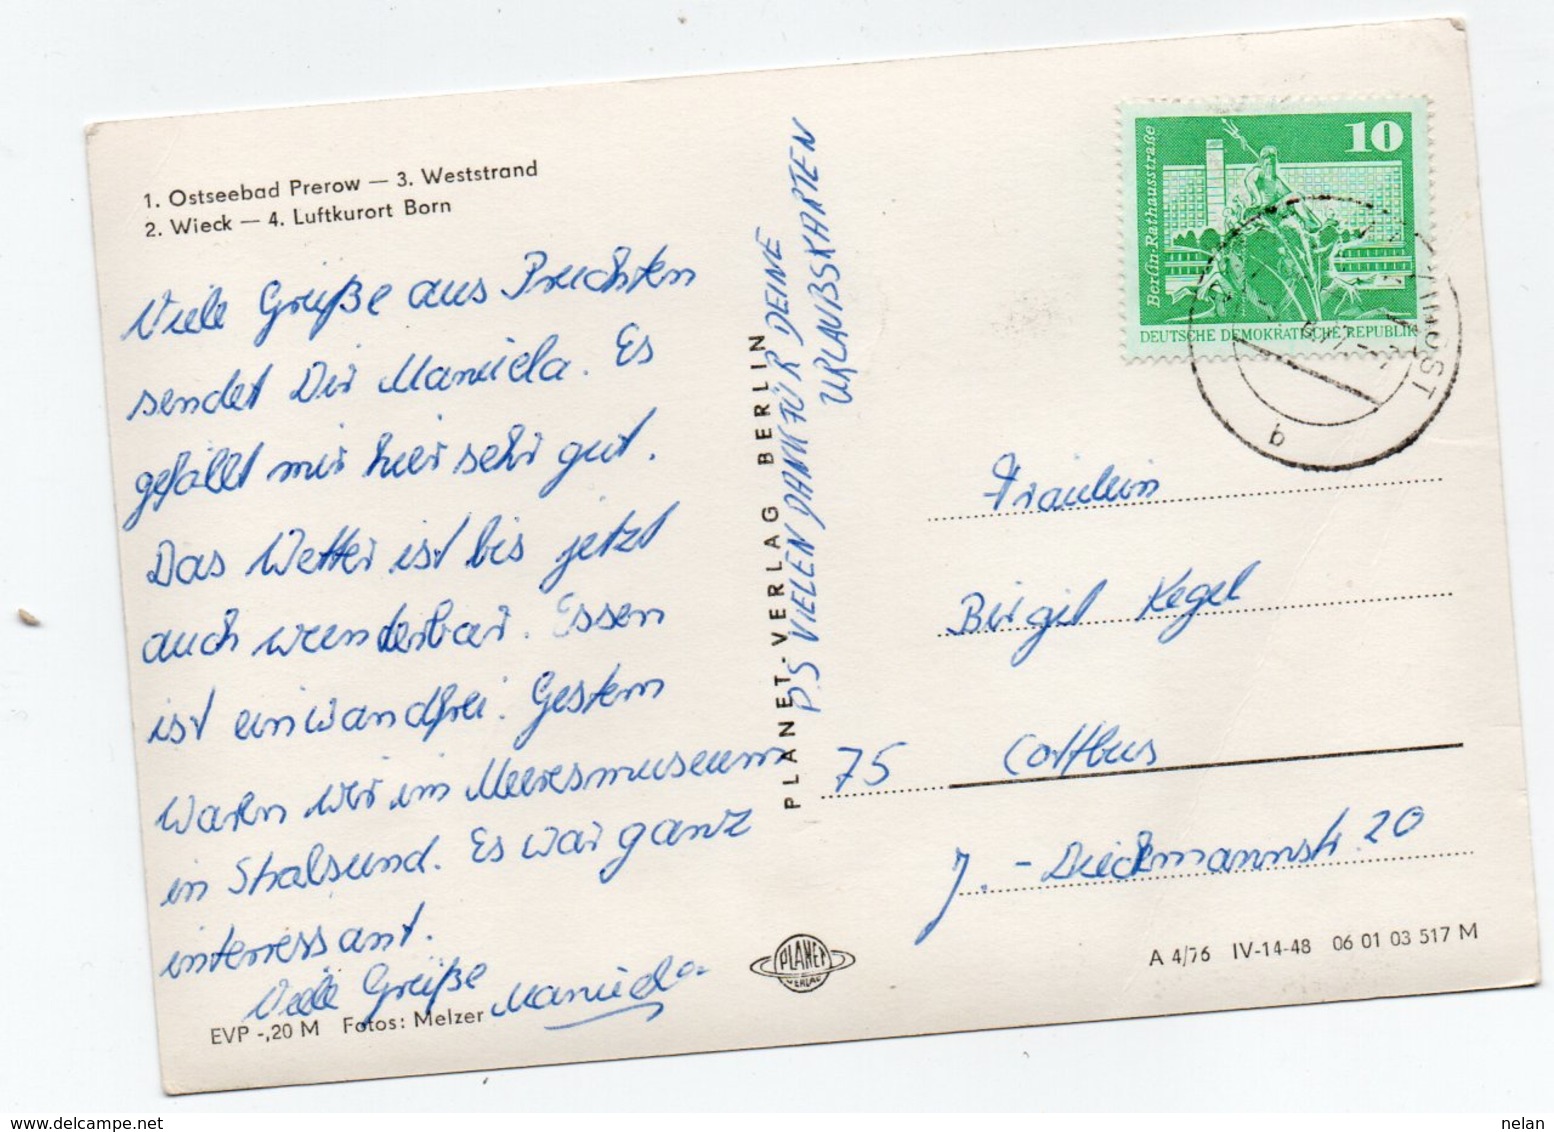 1. Ostseebad Prerow — 3. Weststrand
2. Wieck — 4. Luftkurort Born
Viele Grüße aus Pruchten
sendet Dir Manuela. Es
gefällt mir hier sehr gut.
Das Wetter ist bis jetzt
auch wunderbar. Essen
ist einwandfrei. Gestern
waren wir im Meeresmuseum
in Stralsund. Es war ganz
interressant.
Viele Grüße
Manuela
EVP -,20 M Fotos: Melzer
PLANET-VERLAG BERLIN
P.S VIELEN DANK FÜR DEINE
URLAUBSKARTEN
PLANET
VERLAG
10
Berlin-Rathausstraße
DEUTSCHE DEMOKRATISCHE REPUBLIK
b
Fräulein
Birgit Kegel
75 Cottbus
J. - Dieckmannstr. 20
A 4/76 IV-14-48 06 01 03 517 M
nelan